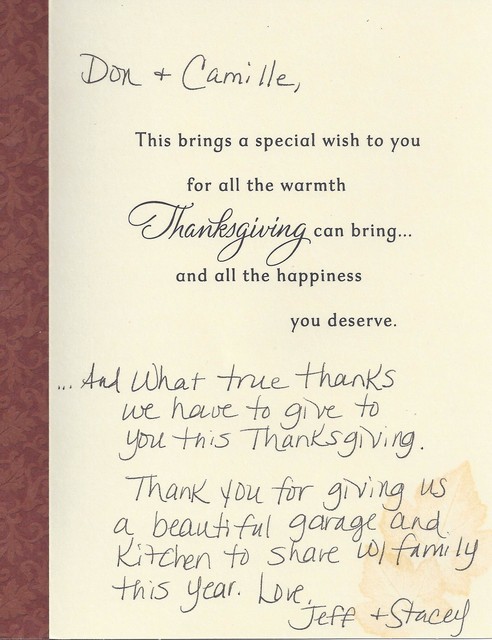 Don + Camille,
This brings a special wish to you
for all the warmth
Thanksgiving can bring...
and all the happiness
you deserve.
... And What true thanks
we have to give to
you this Thanksgiving.
Thank you for giving us
a beautiful garage and
Kitchen to share w/ family
this year. Love,
Jeff + Stacey